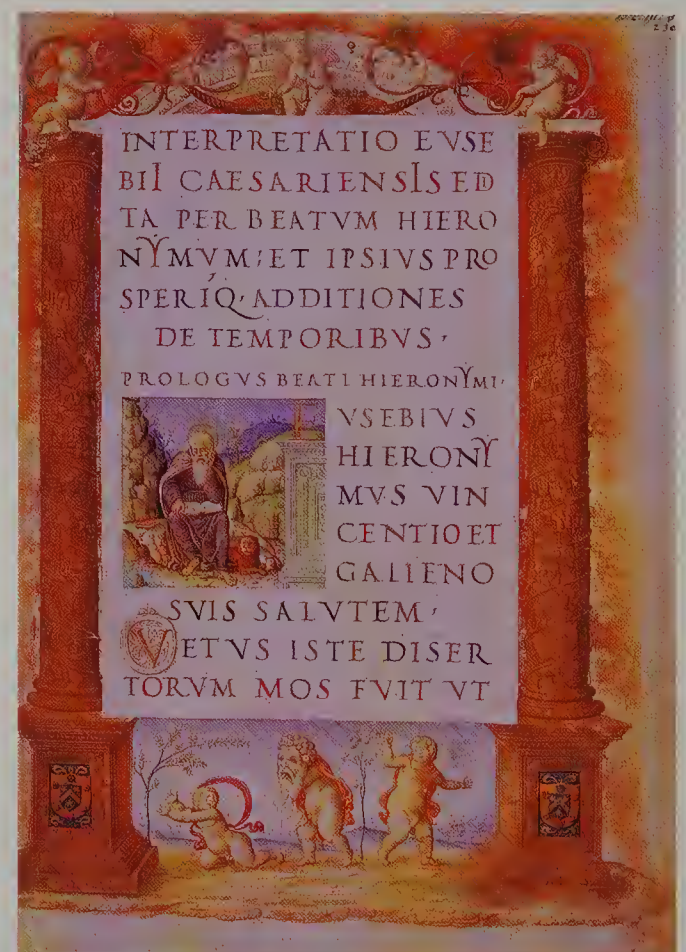 INTERPRETATIO EVSE
BII CAESARIENSIS EDI
TA PER BEATVM HIERO
NYMVM; ET IPSIVS PRO
SPERIQ, ADDITIONES
DE TEMPORIBVS,
PROLOGVS BEATI HIERONYMI,
VSEBIVS
HIERONY
MVS VIN
CENTIO ET
GALIENO
SVIS SALVTEM,
VETVS ISTE DISER
TORVM MOS FVIT VT